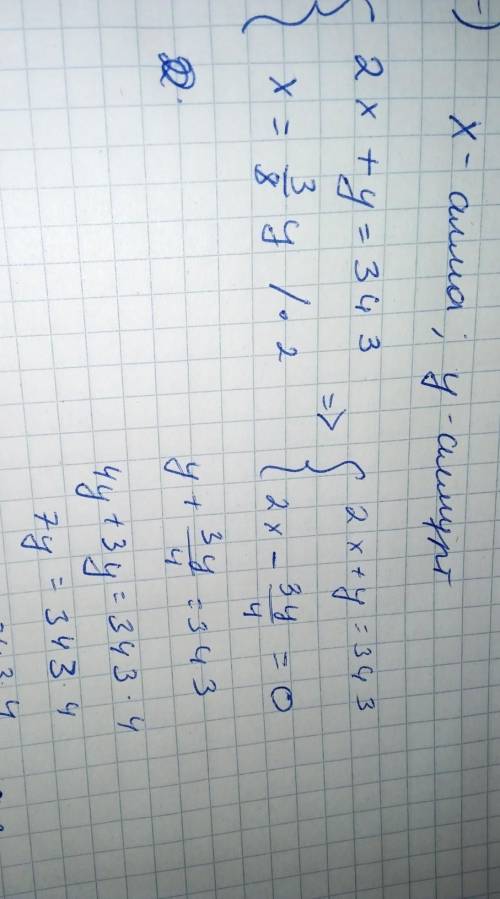 -) x - алма; y - алмұрт
{ 2x + y = 343
x = 3/8 y /· 2
=> { 2x + y = 343
2x - 3y/4 = 0
y + 3y/4 = 343
4y + 3y = 343 · 4
7y = 343 · 4